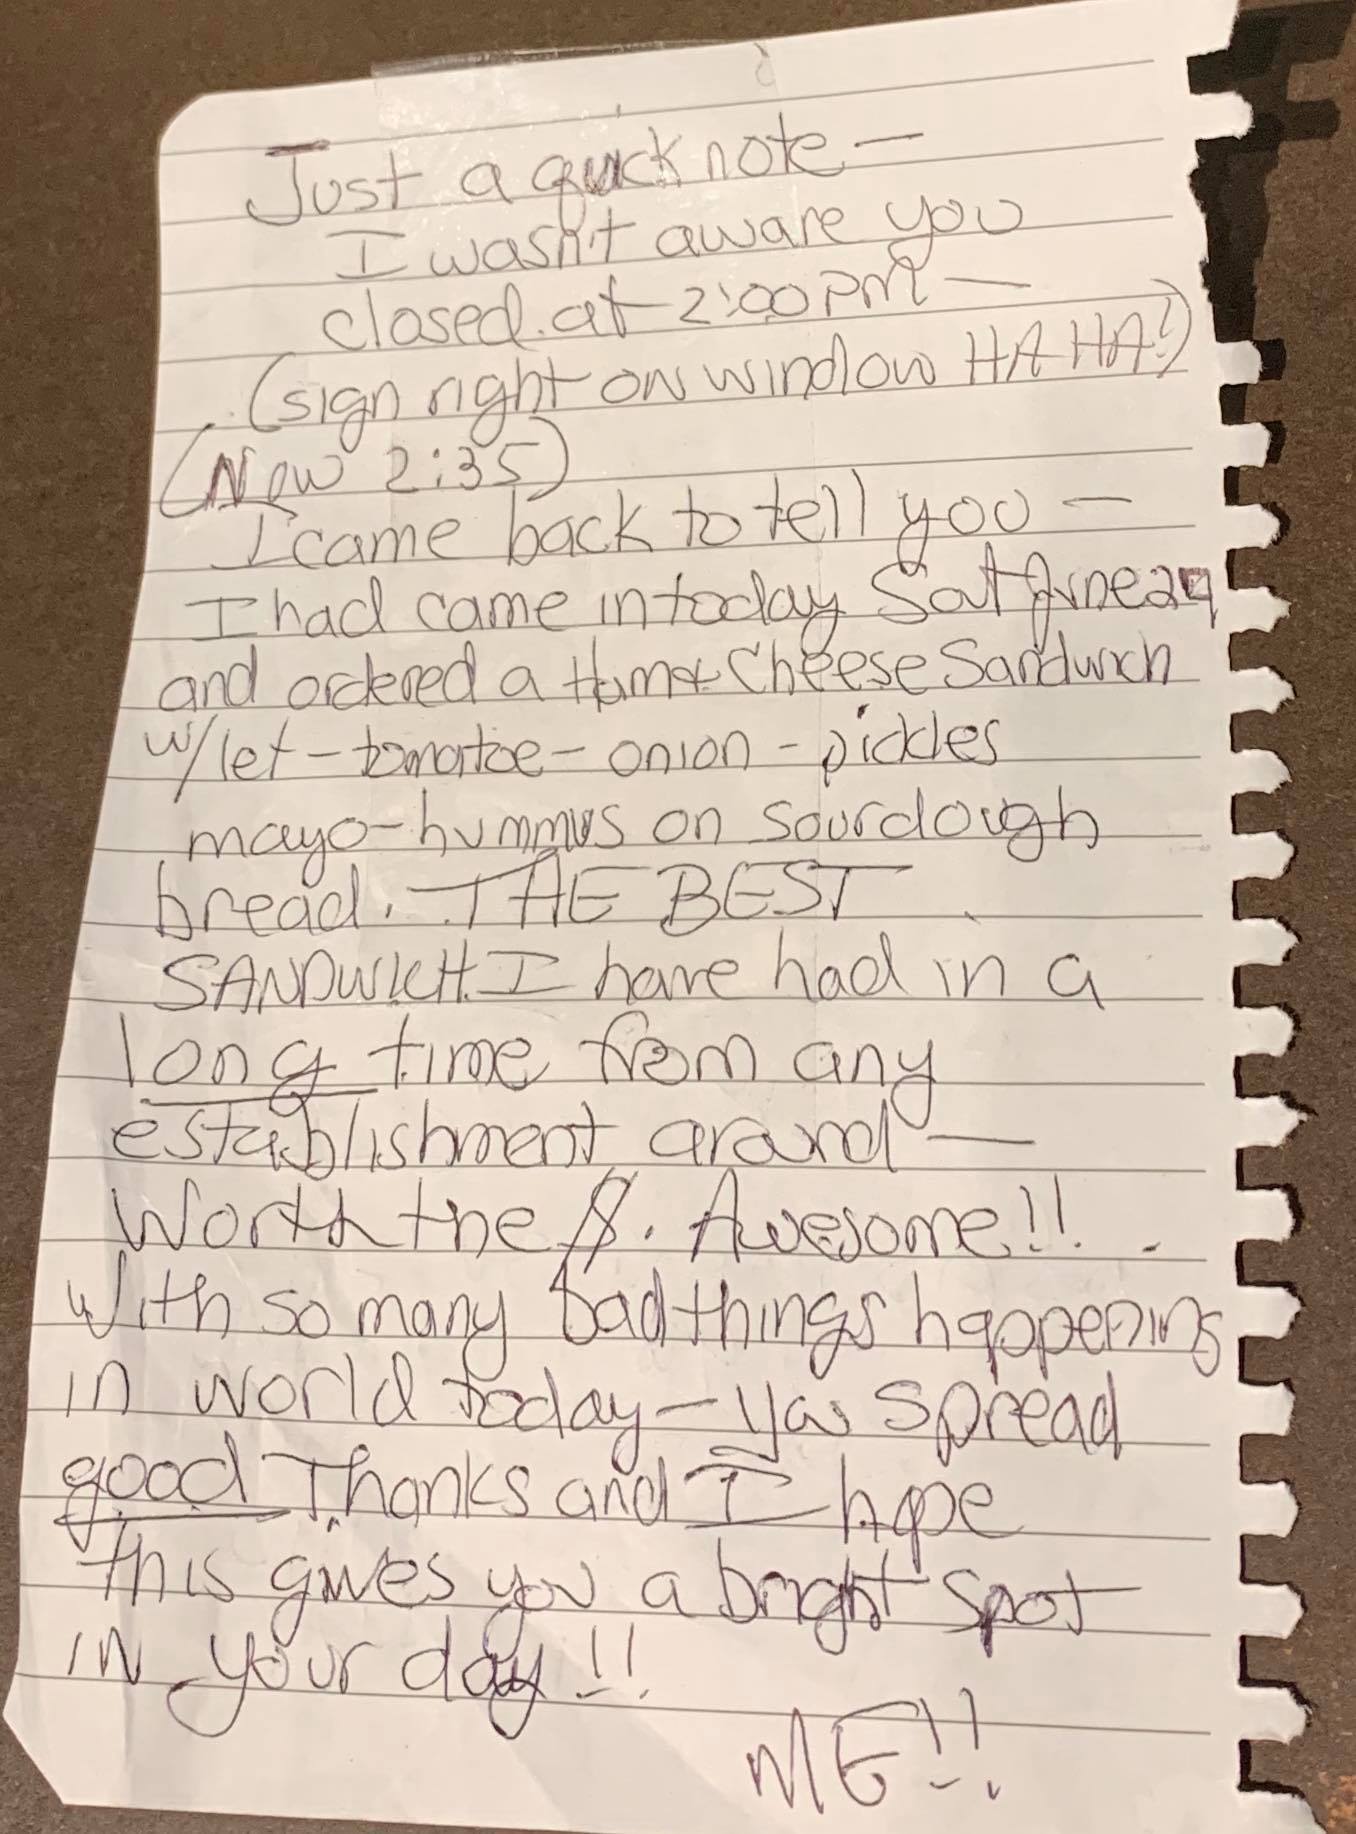 Just a quick note —
I wasn't aware you
closed at 2:00 PM —
(sign right on window HA HA!)
(Now 2:35)
I came back to tell you —
I had came in today Sat June 29
and ordered a Ham & Cheese Sandwich
w/let - tomatoe - onion - pickles
mayo - hummus on sourdough
bread. THE BEST
SANDWICH I have had in a
long time from any
establishment around —
Worth the $. Awesome!!
With so many bad things happening
in world today - you spread
good Thanks and I hope
this gives you a bright spot
in your day!!
ME!!